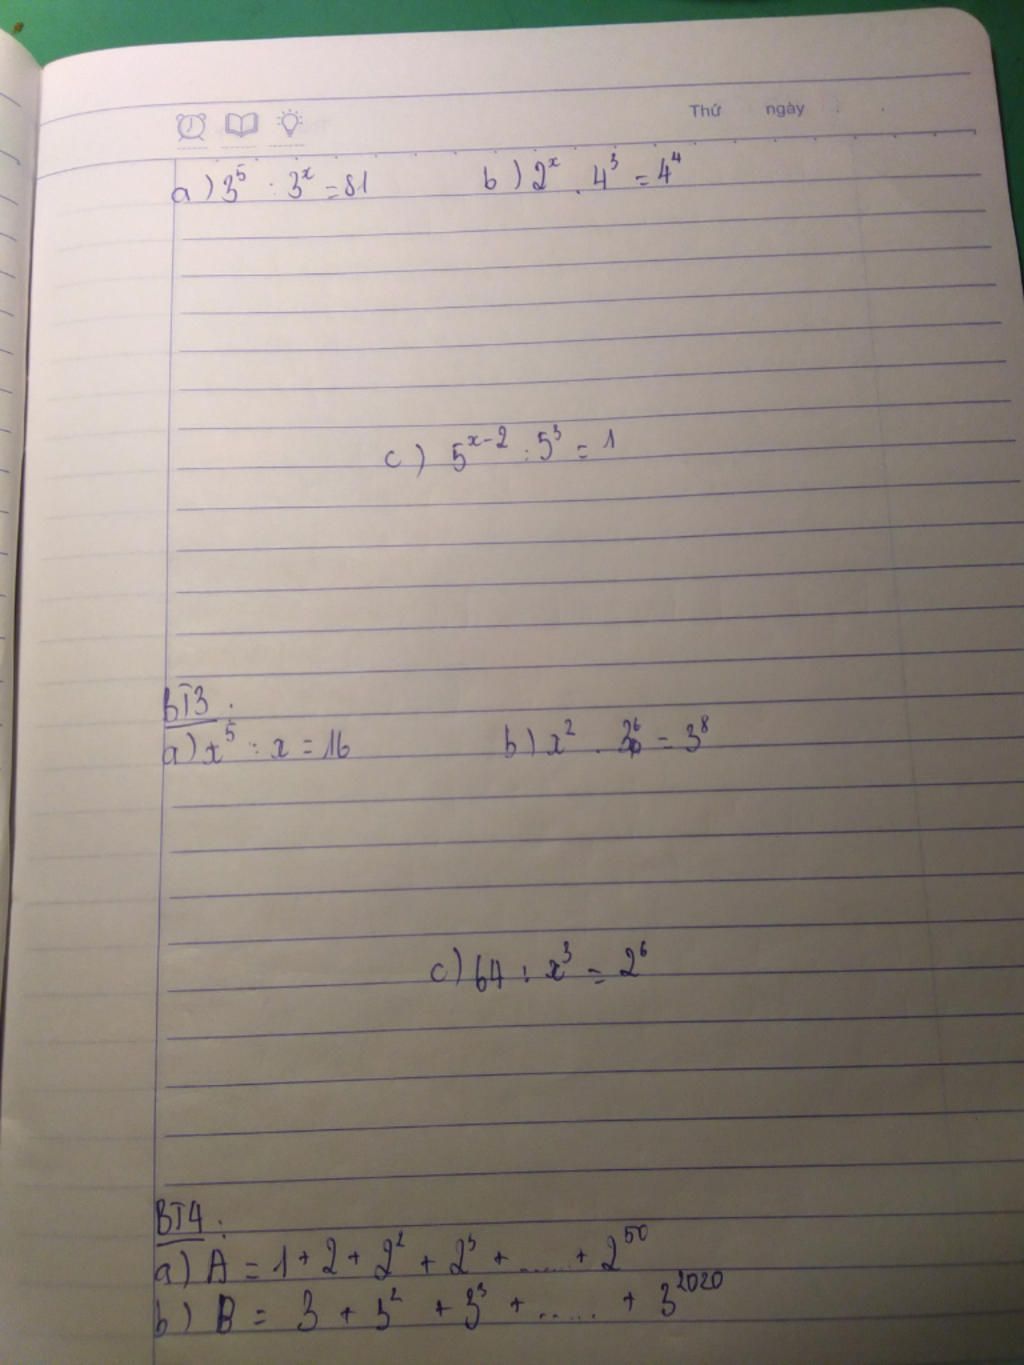 Thứ ngày
a) 3⁵ : 3ˣ = 81 b) 2ˣ . 4³ = 4⁴
c) 5ˣ⁻² : 5³ = 1
BT3 :
a) x⁵ : x = 16 b) x² . 3⁶ = 3⁸
c) 64 : x³ = 2⁶
BT4 :
a) A = 1 + 2 + 2² + 2³ + ..... + 2⁵⁰
b) B = 3 + 3² + 3³ + ...... + 3²⁰²⁰